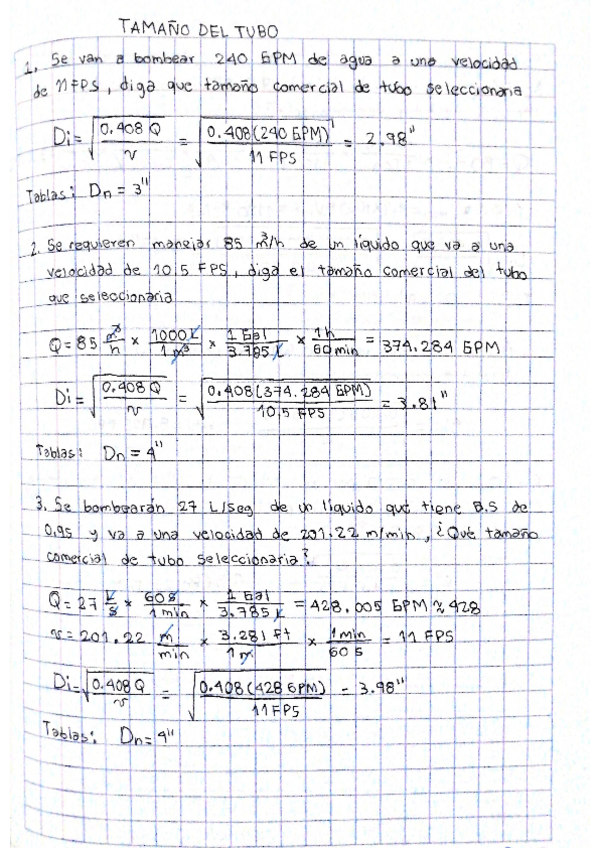 TAMAÑO DEL TUBO
1. Se van a bombear 240 GPM de agua a una velocidad
de 11 FPS, diga que tamaño comercial de tubo seleccionaria
Di = √(0.408 Q / v) = √(0.408 (240 GPM) / 11 FPS) = 2.98"
Tablas: Dn = 3"
2. Se requieren manejar 85 m³/h de un líquido que va a una
velocidad de 10.5 FPS, diga el tamaño comercial del tubo
que seleccionaria
Q = 85 m³/h × 1000 L/1 m³ × 1 Gal/3.785 L × 1h/60 min = 374.284 GPM
Di = √(0.408 Q / v) = √(0.408 (374.284 GPM) / 10.5 FPS) = 3.81"
Tablas: Dn = 4"
3. Se bombearán 27 L/Seg de un líquido que tiene G.S de
0.95 y va a una velocidad de 201.22 m/min, ¿Qué tamaño
comercial de tubo seleccionaria?
Q = 27 L/s × 60 s/1 min × 1 Gal/3.785 L = 428.005 GPM ≈ 428
v = 201.22 m/min × 3.281 ft/1 m × 1 min/60 s = 11 FPS
Di = √(0.408 Q / v) = √(0.408 (428 GPM) / 11 FPS) = 3.98"
Tablas: Dn = 4"